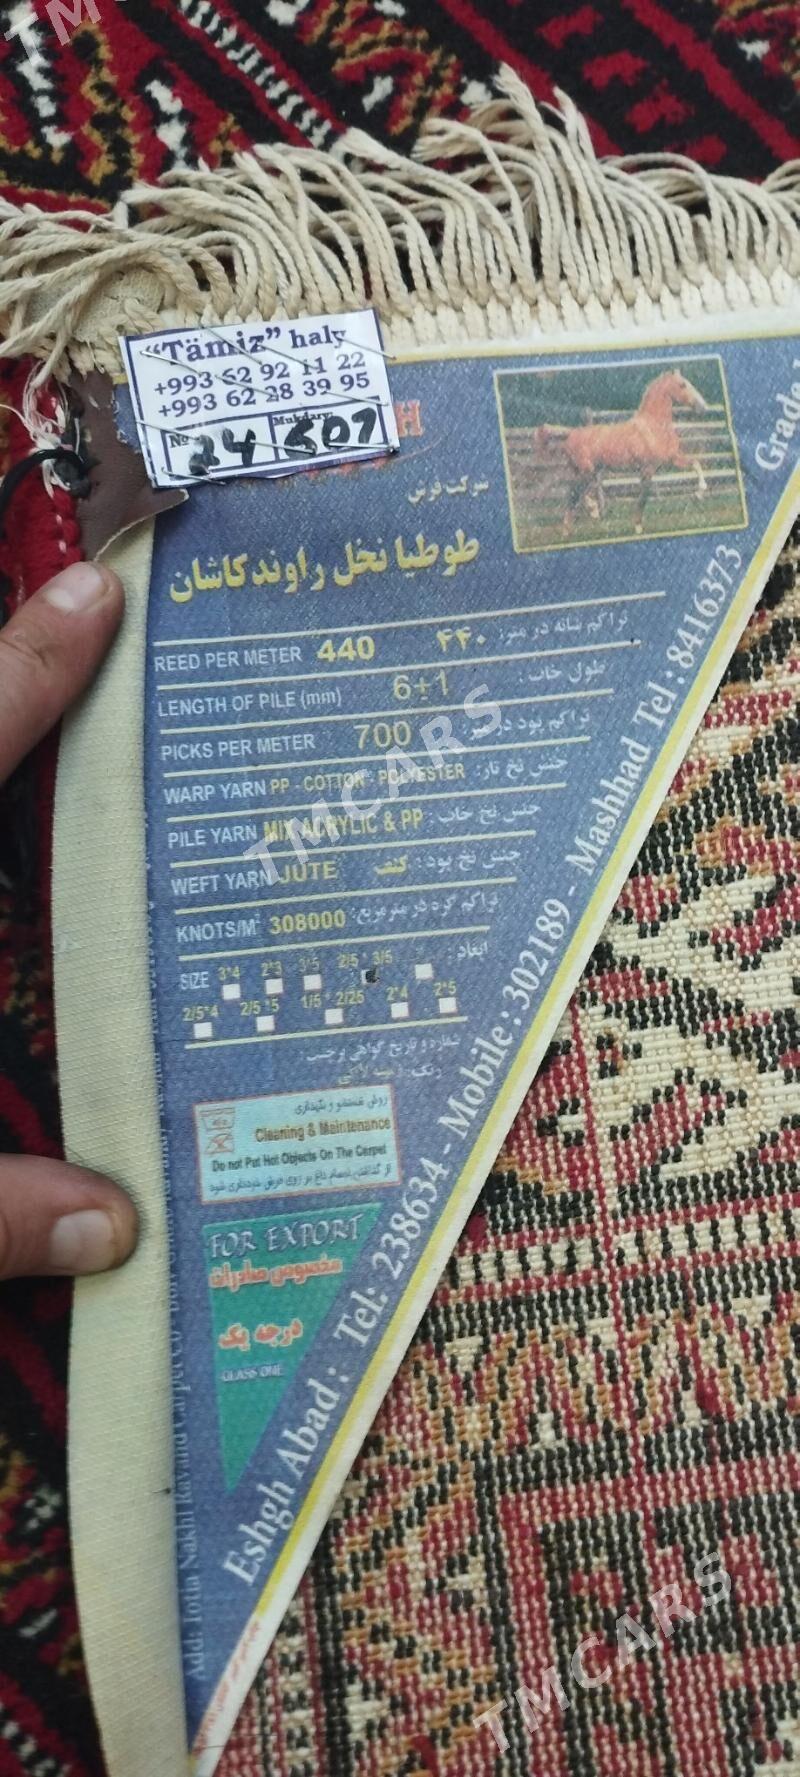 "Tämiz" haly
+993 62 92 11 22
+993 62 28 39 95
№ 24 Mukdary: 607
H
شرکت فرش
طوطیا نخل راوند کاشان
Grade
REED PER METER 440 ۴۴۰ تراکم شانه در متر:
LENGTH OF PILE (mm) 6±1 طول خاب :
PICKS PER METER 700 تراکم پود در متر:
WARP YARN PP - COTTON - POLYESTER جنس نخ تار:
PILE YARN MIX ACRYLIC & PP جنس نخ خاب :
WEFT YARN JUTE کنف جنس نخ پود :
KNOTS/M² 308000 تراکم گره در متر مربع:
SIZE 3*4 2*3 3*5 2/5 * 3/5 ابعاد :
2/5*4 2/5 *5 1/5 * 2/25 2*4 2*5
شماره و تاریخ گواهی برچسب :
رنگ: زمینه لاکی
روش شستشو و نگهداری
Cleaning & Maintenance
Do not Put Hot Objects On The Carpet
از گذاشتن اجسام داغ بر روی فرش خودداری شود
FOR EXPORT
مخصوص صادرات
درجه یک
CLASS ONE
Eshgh Abad : Tel: 238634 - Mobile : 302189 - Mashhad Tel : 8416373
Add: Totia Nakhl Ravand Carpet Co
TMCARS
TMCARS
TMCARS